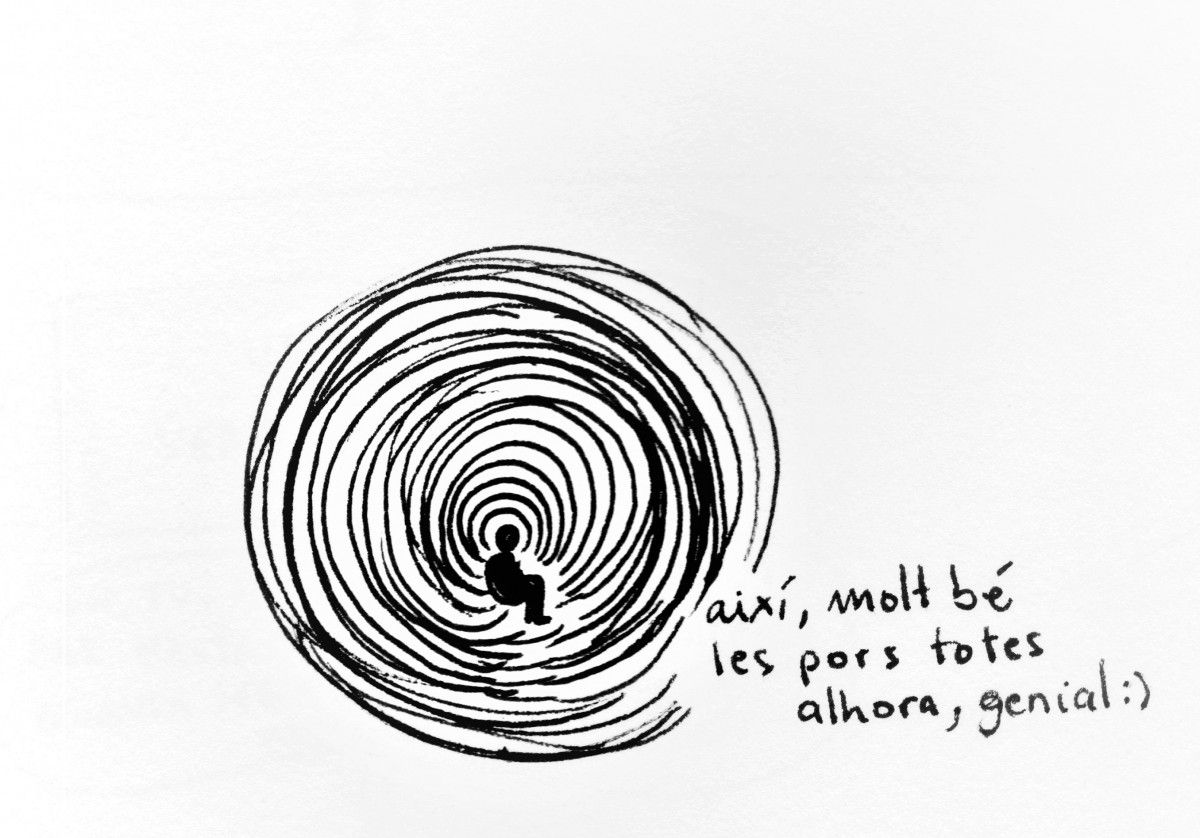 així, molt bé
les pors totes
alhora, genial:)